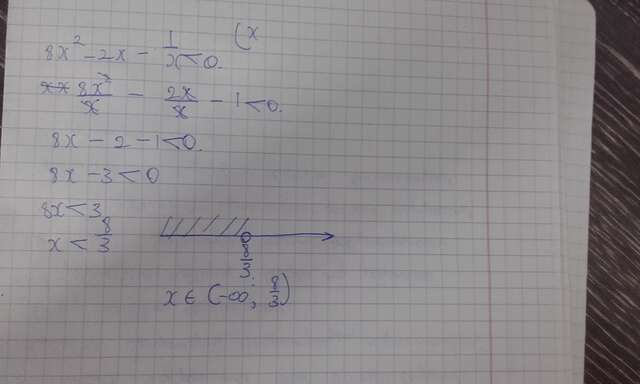 8x² - 2x - 1/x < 0. (x
8x²/x - 2x/x - 1 < 0.
8x - 2 - 1 < 0.
8x - 3 < 0
8x < 3
x < 8/3
8/3
x ∈ (-∞; 8/3)